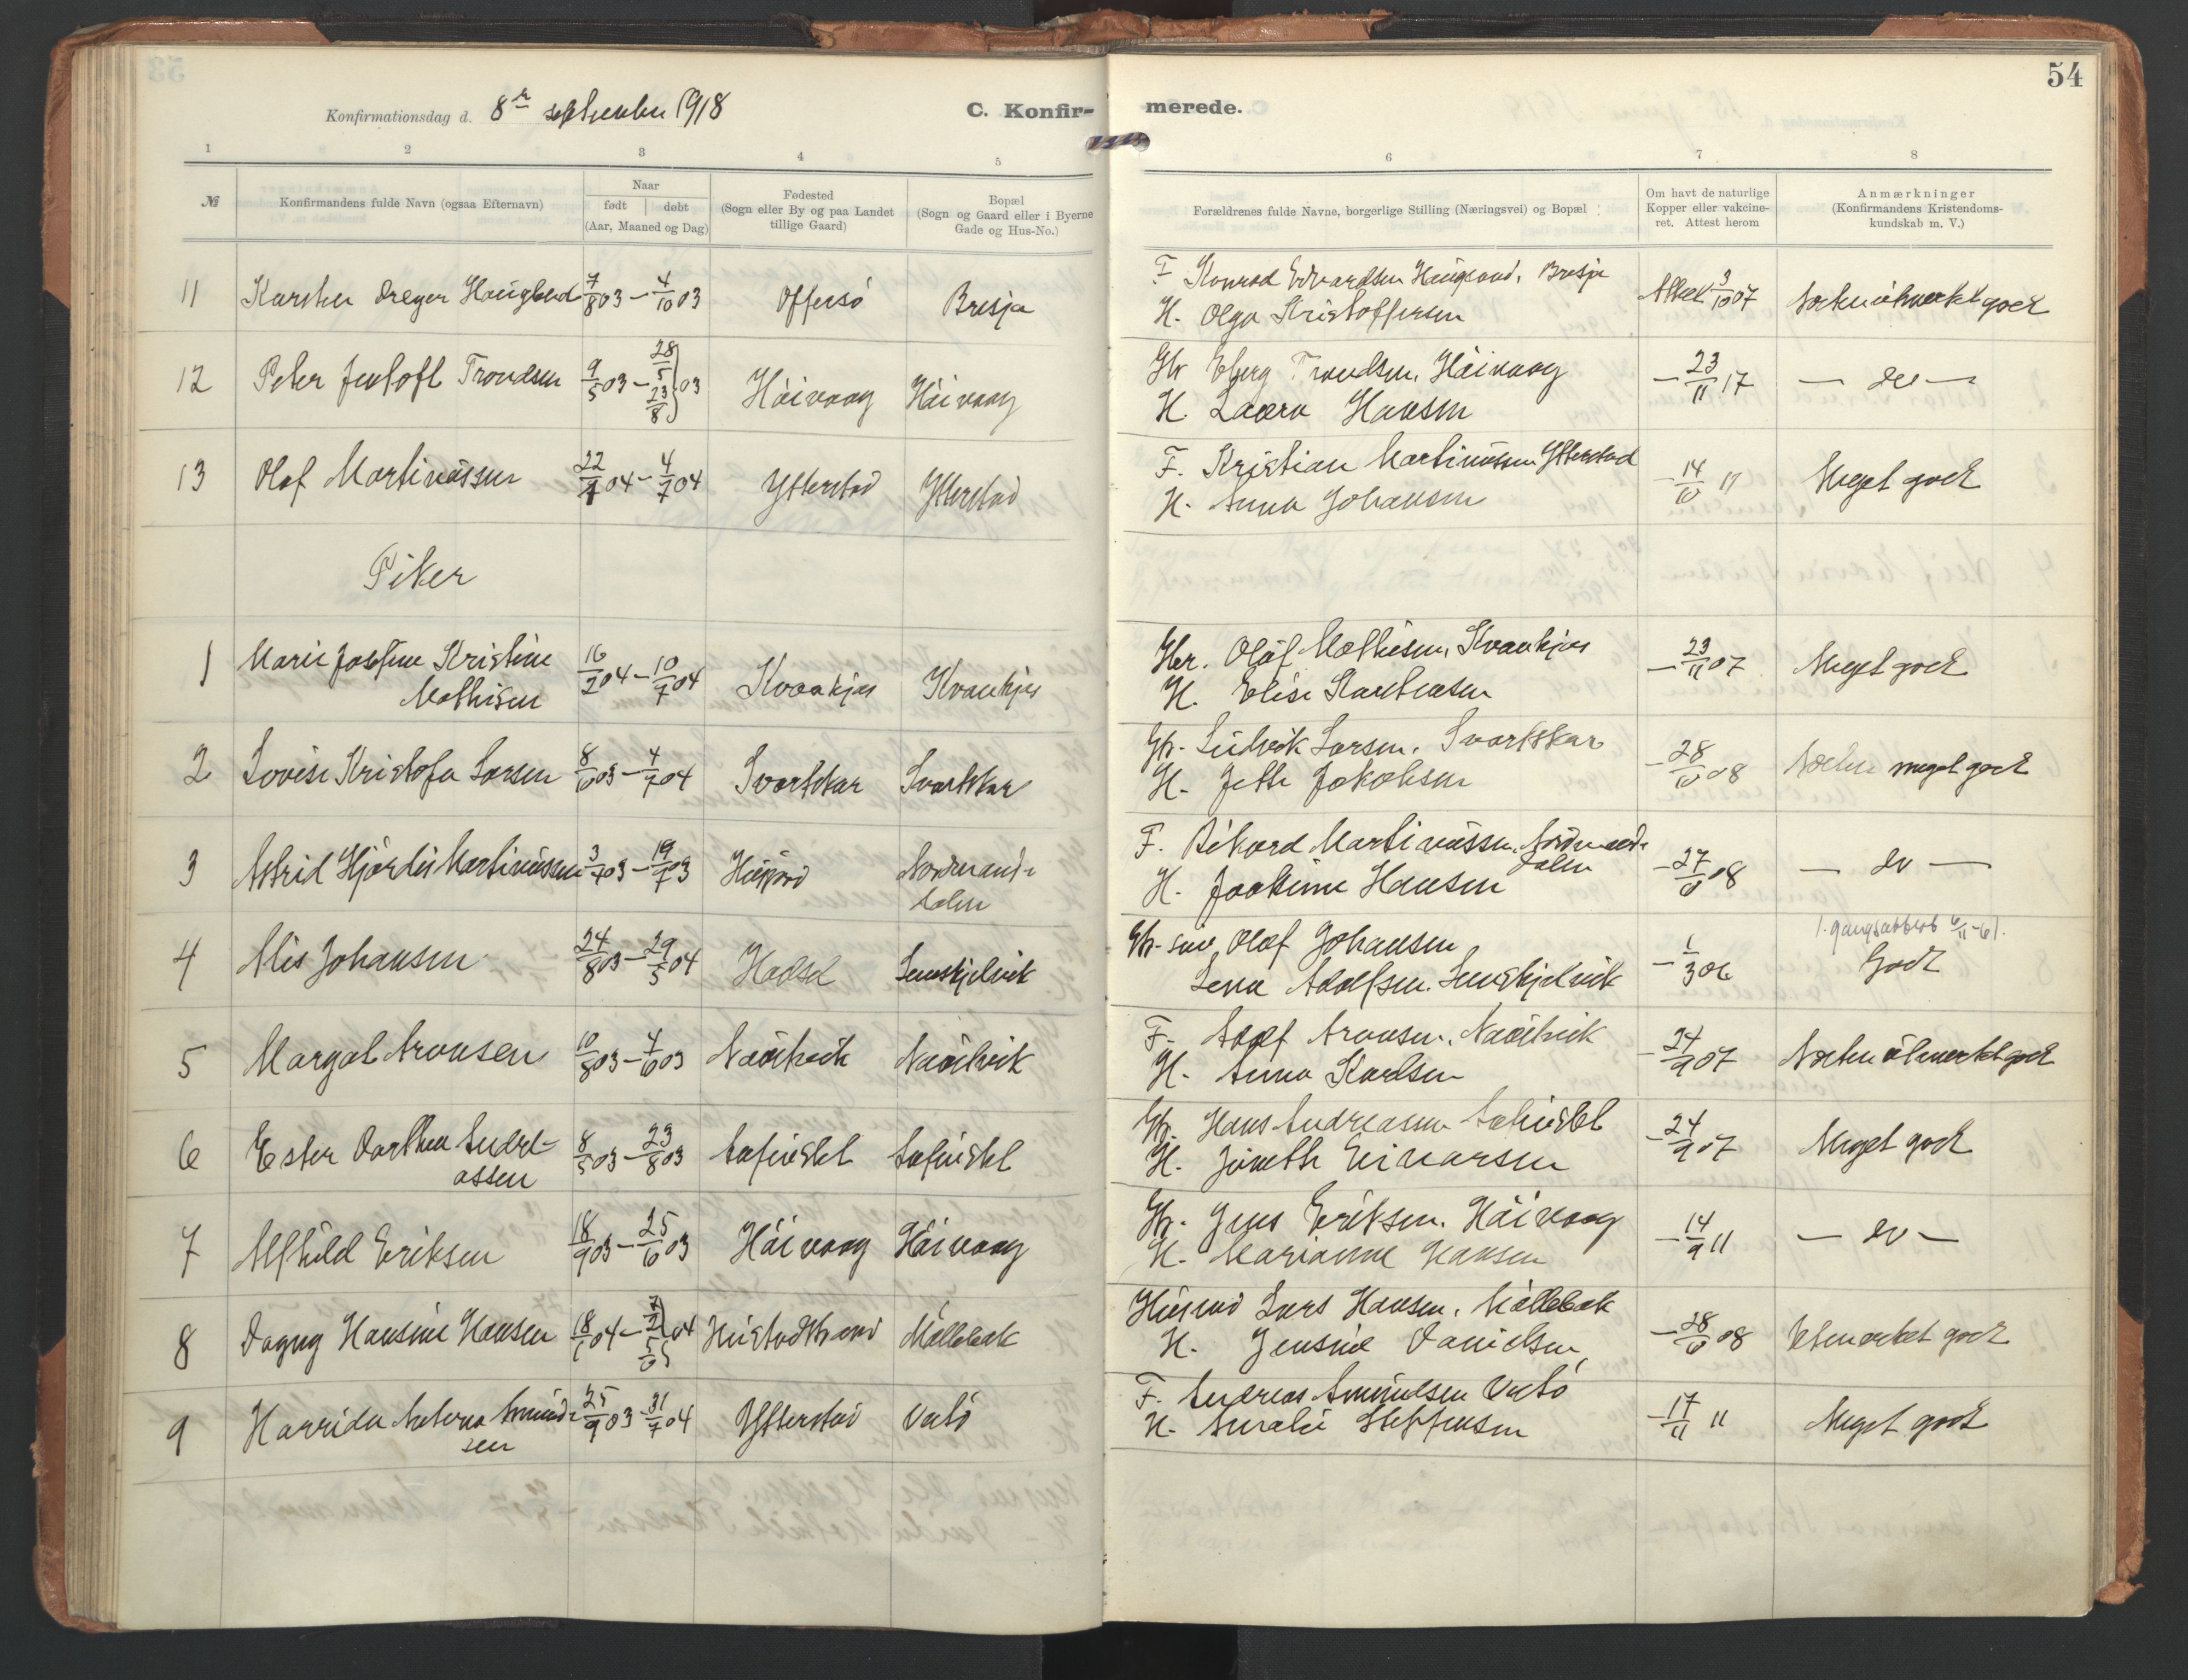 54
Konfirmationsdag d. 8de september 1918
C. Konfirmerede.
1 2 3 4 5 6 7 8
№
Konfirmandens fulde Navn (ogsaa Efternavn)
Naar
født døbt
(Aar, Maaned og Dag)
Fødested
(Sogn eller By og paa Landet
tillige Gaard)
Bopæl
(Sogn og Gaard eller i Byerne
Gade og Hus-No.)
Forældrenes fulde Navne, borgerlige Stilling (Næringsvei) og Bopæl
Om havt de naturlige
Kopper eller vakcine-
ret. Attest herom
Anmærkninger
(Konfirmandens Kristendoms-
kundskab m. V.)
11 Karsten Dreyer Hauglund 7/8 03 – 4/10 03 Offersö Bresja
F. Konrad Edvardsen Hauglund, Bresja
H. Olga Kristoffersen
Attest 3/10 07 Næsten utmerket godt
12 Peter Jentoft Trondsen 9/5 03 – 28/5 23/8 } 03 Häivaag Häivaag
Gbr. Eberg Trondsen, Häivaag
H. Laura Hansen
– 23/11 17 – do –
13 Olaf Martinussen 22/4 04 – 4/7 04 Ytterstad Ytterstad
F. Kristian Martinussen Ytterstad
H. Anna Johansen
– 14/10 11 Meget godt
Piker
1 Marie Josefine Kristine
Mathisen
16/2 04 – 10/7 04 Kvankjos Kvankjos
Gbr. Oluf Mathisen, Kvankjos
H. Elise Karstensen
– 23/11 07 Meget godt
2 Lovise Kristofa Larsen 8/10 03 – 4/7 04 Svartskar Svartskar
Gbr. Ludvik Larsen, Svartskar
H. Jette Jakobsen
– 28/10 08 Næsten meget godt
3 Astrid Hjördis Martinussen 3/7 03 – 19/7 03 Husjord Nordmands-
dalen
F. Rikard Martinussen, Nordmands-
dalen
H. Joakime Hansen
– 27/10 08 – do –
4 Alis Johansen 24/8 03 – 29/5 04 Hadsel Lenskjelvik
Gbr. søn Olaf Johansen
Lena Adolfsen, Lenskjelvik
– 1/3 06 Godt
5 Margot Aronsen 10/8 03 – 4/10 03 Naustvik Naustvik
F. Adolf Aronsen, Naustvik
H. Anna Karlsen
– 24/9 07 Næsten utmerket godt
6 Ester Dorthea Andre-
assen
8/5 03 – 23/8 03
Gbr. Hans Andreassen
H. Einarsen
– 24/9 07 Meget godt
7 Alfhild Eriksen 18/9 03 – 25/10 03 Häivaag Häivaag
Gbr. Jens Eriksen, Häivaag
H. Marianne Hansen
– 14/9 11 – do –
8 Dagny Hansine Hansen 18/1 04 – 7/2 5/6 } 04 Möllebæk
Husmd Lars Hansen, Möllebæk
H. Jensine Danielsen
– 28/10 08 Utmerket godt
9 Harrida Amund-
sen
25/9 03 – 31/7 04 Ytterstad Votö
F. Andreas Amundsen Votö
H. Amalie Steffensen
– 17/11 11 Meget godt